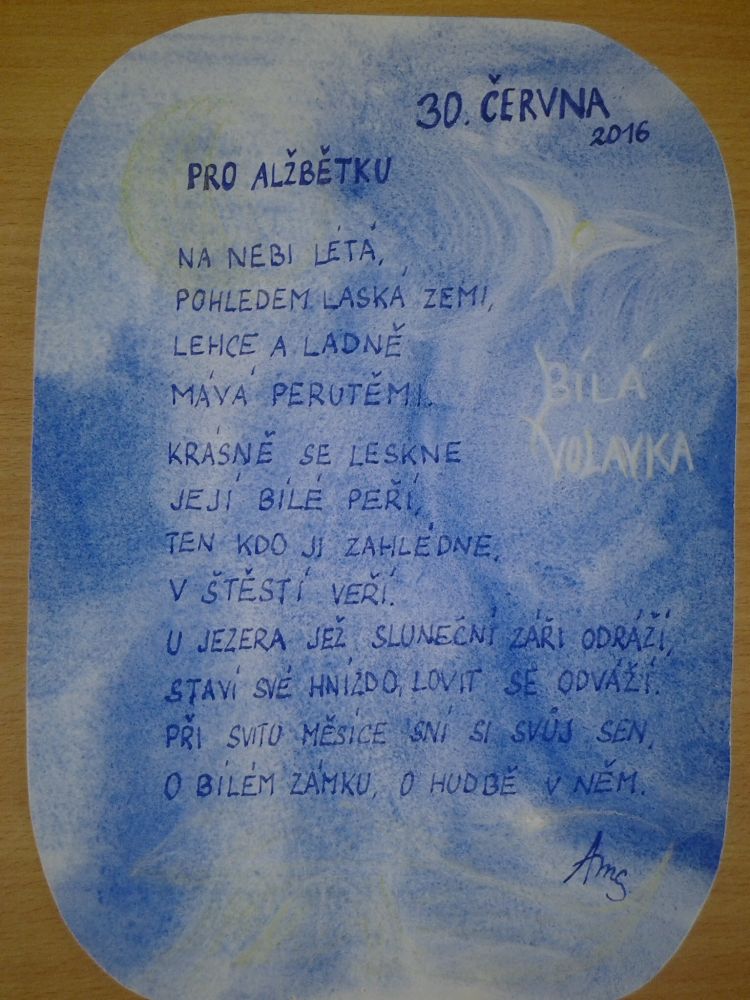 30. ČERVNA
2016
PRO ALŽBĚTKU
NA NEBI LÉTÁ,
POHLEDEM LASKÁ ZEMI,
LEHCE A LADNĚ
MÁVÁ PERUTĚMI.
BÍLÁ
VOLAVKA
KRÁSNĚ SE LESKNE
JEJÍ BÍLÉ PEŘÍ,
TEN KDO JI ZAHLÉDNE,
V ŠTĚSTÍ VEŘÍ.
U JEZERA JEŽ SLUNEČNÍ ZÁŘI ODRÁŽÍ,
STAVÍ SVÉ HNÍZDO, LOVIT SE ODVÁŽÍ.
PŘI SVITU MĚSÍCE SNÍ SI SVŮJ SEN,
O BÍLÉM ZÁMKU, O HUDBĚ V NĚM.